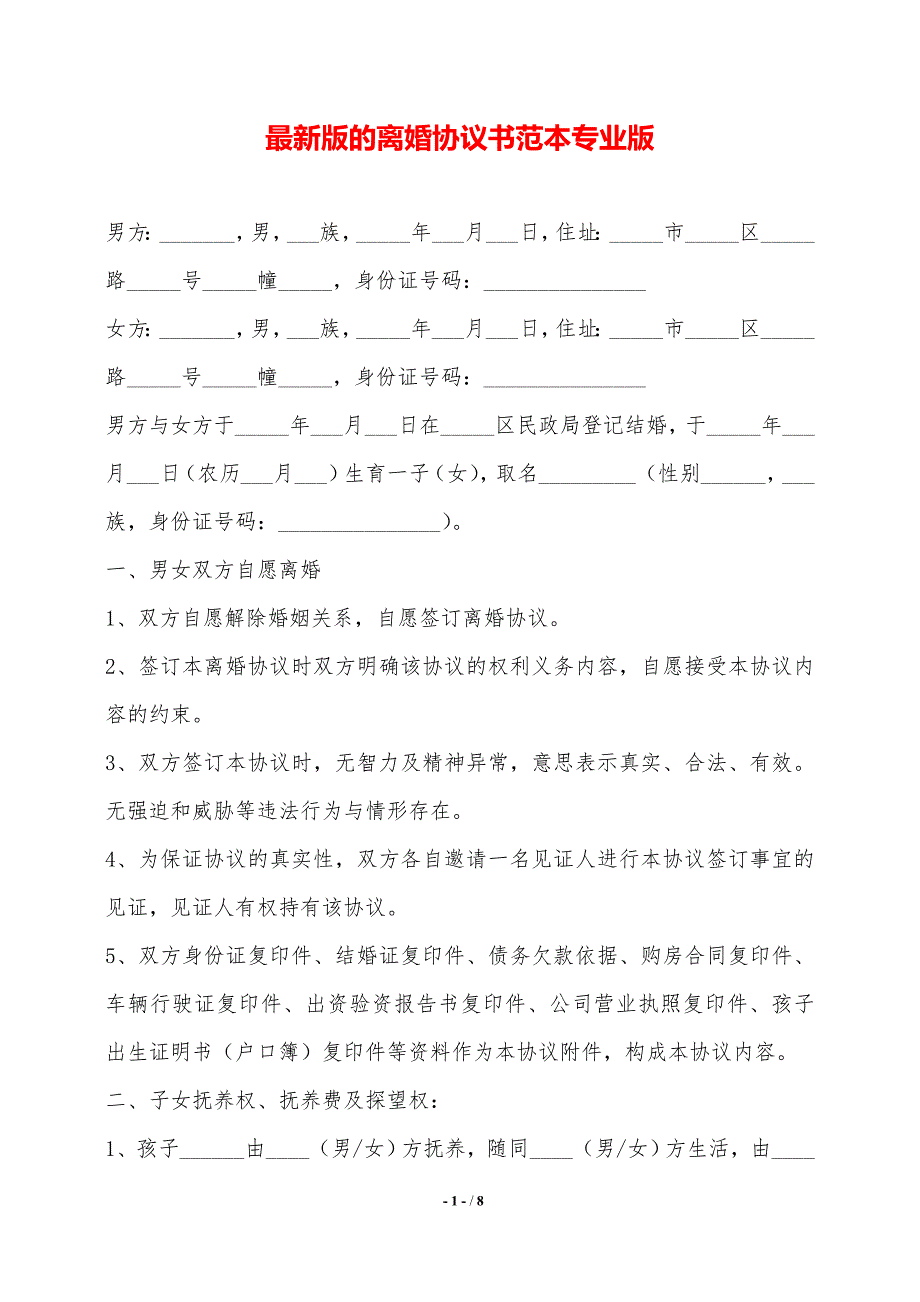 最新版的离婚协议书范本专业版
男方：_______，男，___族，_____年___月___日，住址：_____市_____区_____
路_____号_____幢_____，身份证号码：_______________
女方：_______，男，___族，_____年___月___日，住址：_____市_____区_____
路_____号_____幢_____，身份证号码：_______________
男方与女方于_____年___月___日在_____区民政局登记结婚，于_____年___
月___日（农历___月___）生育一子（女），取名_________（性别______，___
族，身份证号码：_______________）。
一、男女双方自愿离婚
1、双方自愿解除婚姻关系，自愿签订离婚协议。
2、签订本离婚协议时双方明确该协议的权利义务内容，自愿接受本协议内
容的约束。
3、双方签订本协议时，无智力及精神异常，意思表示真实、合法、有效。
无强迫和威胁等违法行为与情形存在。
4、为保证协议的真实性，双方各自邀请一名见证人进行本协议签订事宜的
见证，见证人有权持有该协议。
5、双方身份证复印件、结婚证复印件、债务欠款依据、购房合同复印件、
车辆行驶证复印件、出资验资报告书复印件、公司营业执照复印件、孩子
出生证明书（户口簿）复印件等资料作为本协议附件，构成本协议内容。
二、子女抚养权、抚养费及探望权：
1、孩子______由____（男/女）方抚养，随同____（男/女）方生活，由____
- 1 - / 8